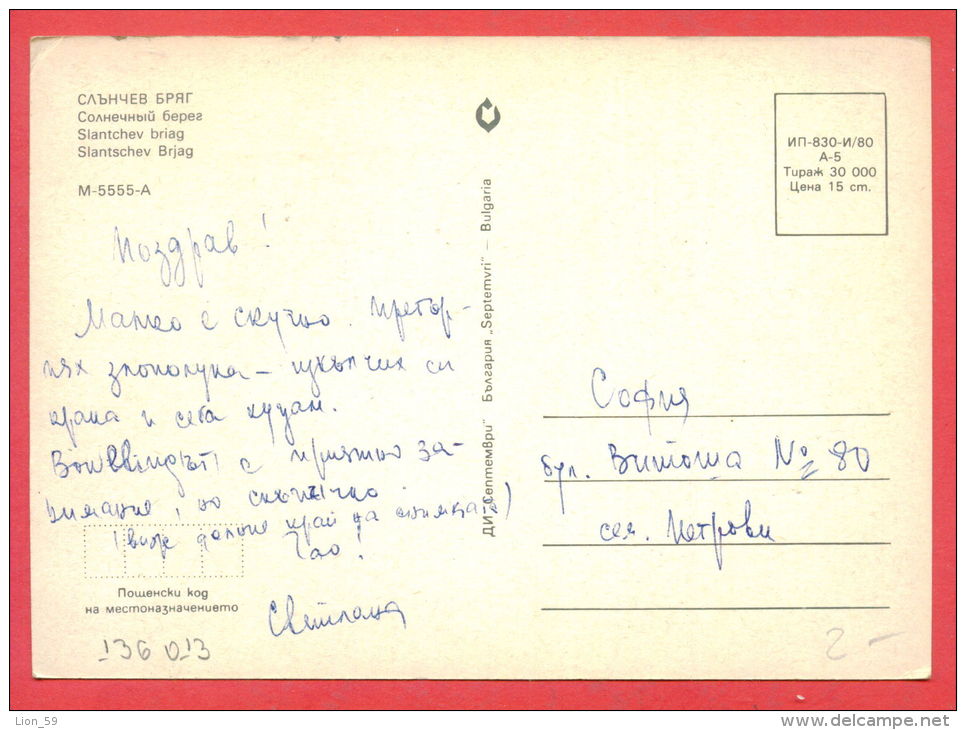 СЛЪНЧЕВ БРЯГ
Солнечный берег
Slantchev briag
Slantschev Brjag
М-5555-А
Поздрав!
Малко е скучно. Претър-
пях злополука – изкълчих си
крака и сега куцам.
е приятно за-
нимание, но скъпичко.
(виж долния край на снимката)
Чао!
Светлана
Пощенски код
на местоназначението
136 013
ДИ „Септември" България „Septemvri" – Bulgaria
ИП-830-И/80
А-5
Тираж 30 000
Цена 15 ст.
София
бул. Витоша № 80
сем. Петрови
2-
Lion_59
www.delcampe.net